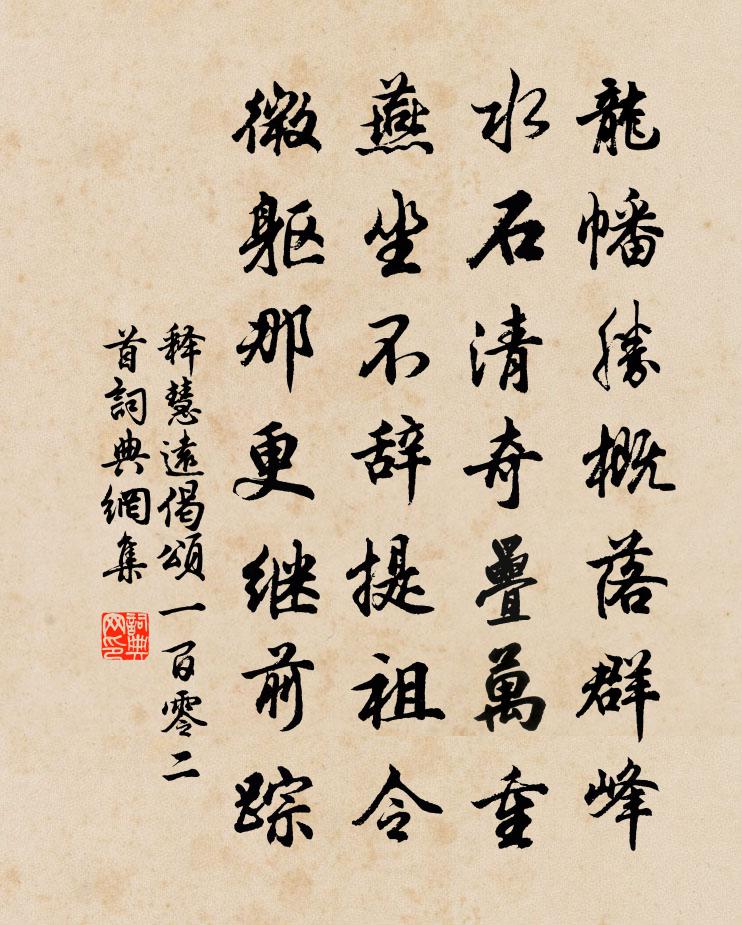 龍幡勝概落群峰
水石清奇疊萬重
燕坐不辞提祖令
微軀那更继前踪
释慧遠偈頌一百零二
首詞典網集
詞典网印